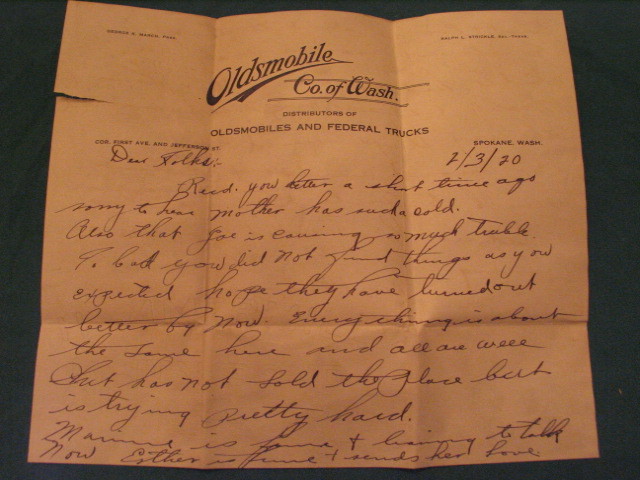 GEORGE E. MARCH, PRES.
RALPH L. STRICKLE, SEC.-TREAS.
Oldsmobile
Co. of Wash.
DISTRIBUTORS OF
OLDSMOBILES AND FEDERAL TRUCKS
COR. FIRST AVE. AND JEFFERSON ST.
SPOKANE, WASH.
2/3/20
Dear Folks:-
Recd. your letter a short time ago
sorry to hear mother has such a cold.
Also that Joe is causing so much trouble.
To bad you did not find things as you
expected hope they have turned out
better by now. Everything is about
the same here and all are well
has not sold the place but
is trying pretty hard.
is fine + to talk
now Esther is fine + sends her love